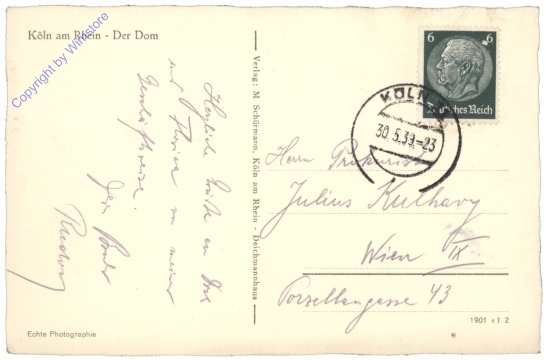 Köln am Rhein - Der Dom
Copyright by Winfstore
Herzliche Grüße an Dich
und Thrice von meiner
Geschäftsreise.
Dein Bruder
Rudolf
Verlag: M Schürmann, Köln am Rhein - Deichmannhaus
6 6
Deutsches Reich
KÖLN
30.5.39.-23
Herrn Prokurist
Julius Kulhavy
Wien IX
Porzellangasse 43
1901 c l 2
Echte Photographie